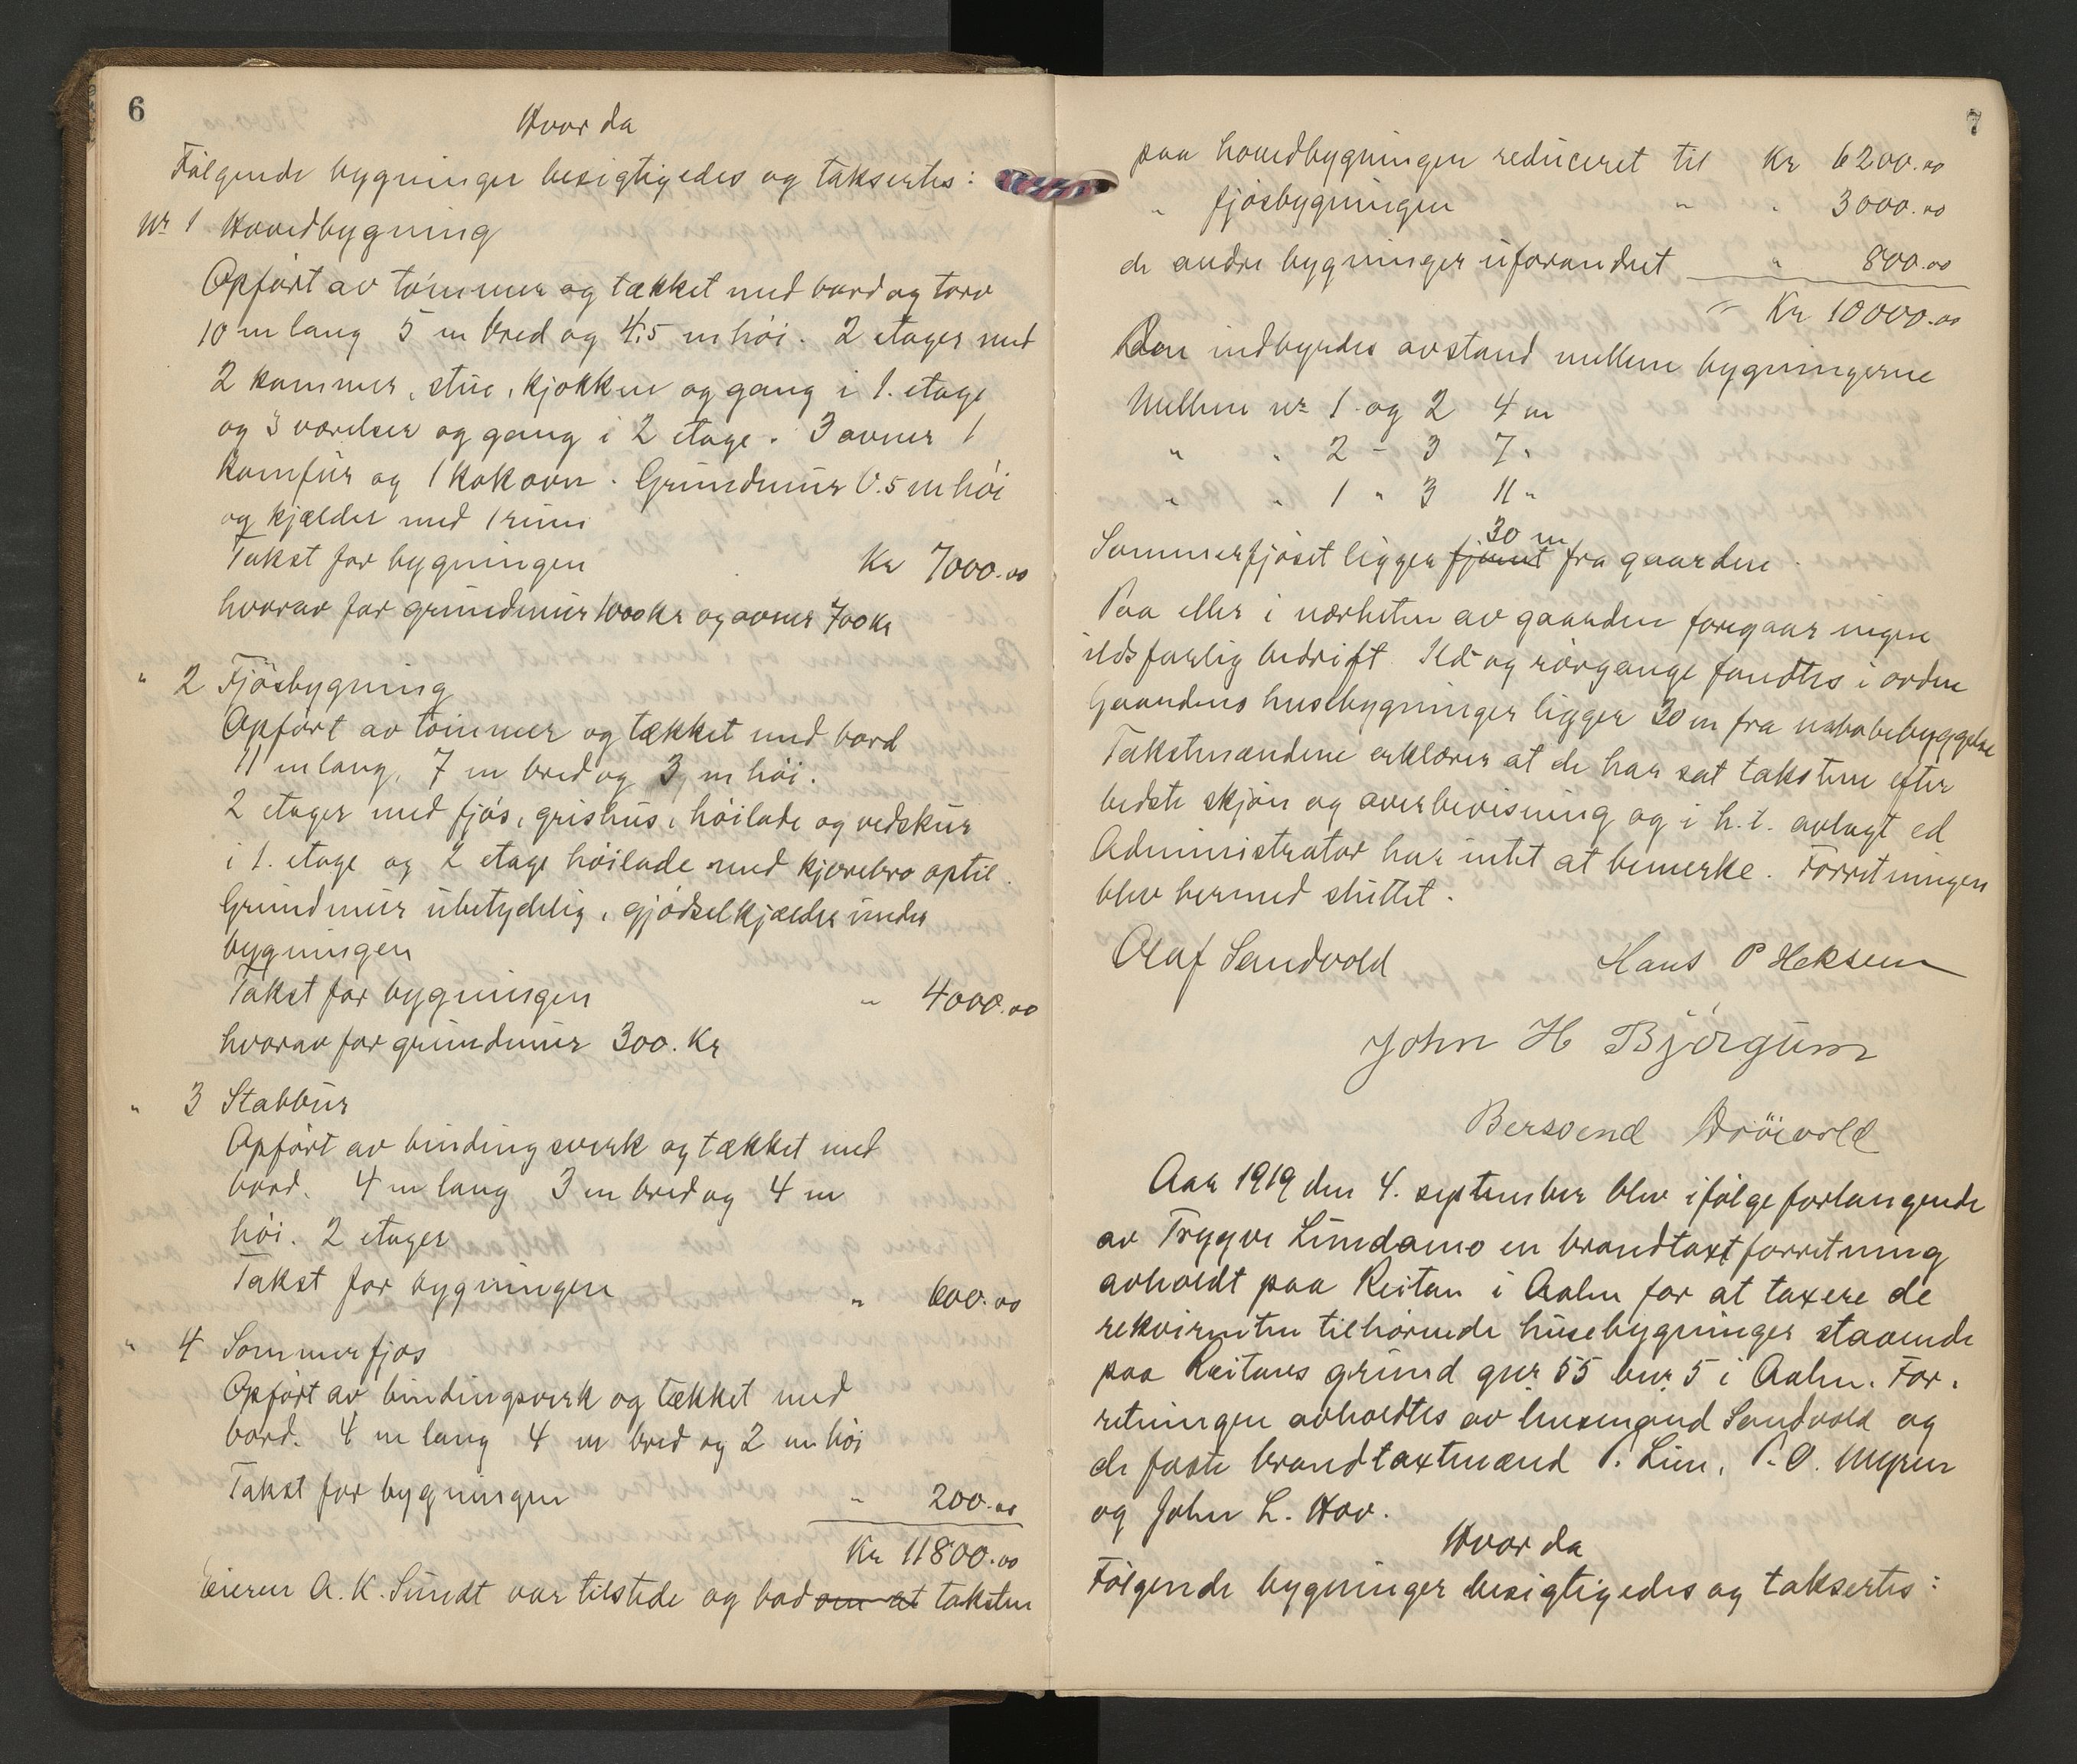 6
Hvor da
Følgende bygninger besigtigedes og taksertes:
Nr 1 Hovedbygning
Opført av tømmer og tækket med bord og torv
10 m lang 5 m bred og 4.5 m høi. 2 etager med
2 kammer, stue, kjøkken og gang i 1. etage
og 3 værelser og gang i 2 etage. 3 ovner 1
komfur og 1 kokovn. Grundmur 0.5 m høi
og kjælder med 1 rum
Takst for bygningen Kr 7000.00
hvorav for grundmur 1000 kr og ovner 700 kr
" 2 Fjøsbygning
Opført av tømmer og tækket med bord
11 m lang, 7 m bred og 3 m høi.
2 etager med fjøs, grishus, høilade og vedskur
i 1. etage og 2 etage høilade med kjørebro optil.
Grundmur ubetydelig, gjødselkjælder under
bygningen
Takst for bygningen " 4000.00
hvorav for grundmur 300. Kr
" 3 Stabbur
Opført av bindingsverk og tækket med
bord. 4 m lang 3 m bred og 4 m
høi. 2 etager
Takst for bygningen " 600.00
" 4 Sommerfjøs
Opført av bindingsverk og tækket med
bord. 4 m lang 4 m bred og 2 m høi
Takst for bygningen " 200.00
Kr 11800.00
Eieren A. K. Sundt var tilstede og bad om at taksten
7
paa hovedbygningen reduceret til Kr 6200.00
" fjøsbygningen " " 3000.00
de andre bygninger uforandret " 800.00
" Kr 10000.00
Den indbyrdes avstand mellem bygningerne
Mellem nr 1 og 2 4 m
" " 2 - 3 7 "
" " 1 " 3 11 "
30 m
Sommerfjøset ligger fjernt fra gaarden.
Paa eller i nærheten av gaarden foregaar ingen
ildsfarlig bedrift. Ild og rørgange fandtes i orden
Gaardens husebygninger ligger 30 m fra nabobebyggelse
Takstmændene erklærer at de har sat taksten efter
bedste skjøn og overbevisning og i h. t. avlagt ed
Administrator har intet at bemerke. Forretningen
blev hermed sluttet.
Olaf Sandvold Hans P Heksem
John H Bjørgum
Bersvend Drøivold
Aar 1919 den 4. september blev ifølge forlangende
av Trygve Lundamo en brandtaxtforretning
avholdt paa Reitan i Aalen for at taxere de
rekvirenten tilhørende husebygninger staaende
paa Reitans grund gnr. 55 bnr. 5 i Aalen. For-
retningen avholdtes av lensmand Sandvold og
de faste brandtaxtmænd P. Lien, P. O. Myren
og John L. Hov.
Hvor da
Følgende bygninger besigtigedes og taksertes: